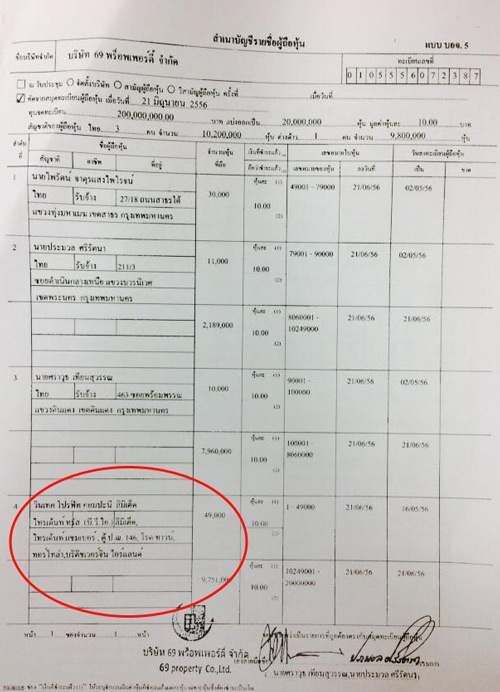 สำเนาบัญชีรายชื่อผู้ถือหุ้น
แบบ บอจ. 5
ชื่อบริษัท/จำกัด บริษัท 69 พร็อพเพอร์ตี้ จำกัด
ทะเบียนเลขที่
0105556072387
ณ วันประชุม จัดตั้งบริษัท สามัญผู้ถือหุ้น วิสามัญผู้ถือหุ้น ครั้งที่ เมื่อวันที่
คัดจากสมุดทะเบียนผู้ถือหุ้น เมื่อวันที่ 21 มิถุนายน 2556
ทุนจดทะเบียน 200,000,000.00 บาท แบ่งออกเป็น 20,000,000 หุ้น มูลค่าหุ้นละ 10.00 บาท
สัญชาติของผู้ถือหุ้น ไทย 3 คน จำนวน 10,200,000 หุ้น ต่างด้าว 1 คน จำนวน 9,800,000 หุ้น
ลำดับที่ ชื่อผู้ถือหุ้น จำนวนหุ้นที่ถือ เงินที่ชำระแล้ว เลขหมายใบหุ้น วันลงทะเบียนผู้ถือหุ้น
สัญชาติ อาชีพ ที่อยู่ เลขหมายของหุ้น ลงวันที่ เป็น ขาด
1 นายไพรัตน์ 30,000 หุ้นละ (1) 49001 - 79000 21/06/56 02/05/56
ไทย รับจ้าง 27/18 ถนนสาธรใต้ 10.00
(2)
แขวงทุ่งมหาเมฆ เขตสาธร กรุงเทพมหานคร
2 นายประมวล ศรีรัตนา 11,000 หุ้นละ (1) 79001 - 90000 21/06/56 02/05/56
ไทย รับจ้าง 211/3 10.00
(2)
ซอยดำเนินกลางเหนือ แขวงบวรนิเวศ
เขตพระนคร กรุงเทพมหานคร
2,189,000 หุ้นละ (1) 8060001 - 10249000 21/06/56 21/06/56
10.00
(2)
3 นายศราวุธ เทียนสุวรรณ 10,000 หุ้นละ (1) 90001 - 100000 21/06/56 02/05/56
ไทย รับจ้าง 463 ซอยพร้อมพรรณ 10.00
(2)
แขวงดินแดง เขตดินแดง กรุงเทพมหานคร
7,960,000 หุ้นละ (1) 100001 - 8060000 21/06/56 21/06/56
10.00
(2)
4 วินเทค โปรฟิท คอมปะนี ลิมิเต็ด 49,000 หุ้นละ (1) 1 49000 21/06/56 16/05/56
ไทรเด้นท์ ทรัส (บี.วี.ไอ.) ลิมิเต็ด, 10.00
(2)
ไทรเด้นท์ แชมเบอร์, ตู้ ป.ณ. 146, โรด ทาวน์,
ทอร์โทล่า,บริติชเวอร์จิน ไอร์แลนด์
9,751,000 หุ้นละ (1) 10249001 - 20000000 21/06/56 21/06/56
10.00
(2)
หน้า 1 ของจำนวน 1 หน้า
บริษัท 69 พร็อพเพอร์ตี้ จำกัด
69 property Co.,Ltd.
นายศราวุธ เทียนสุวรรณ,นายประมวล ศรีรัตนา